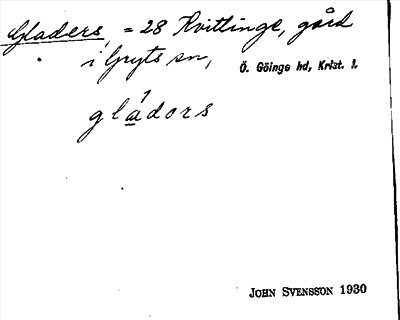 Gladers, = 28 Kvittinge, gård
i Gryts sn,
Ö. Göinge hd, Krist. l.
gládors
JOHN SVENSSON 1930